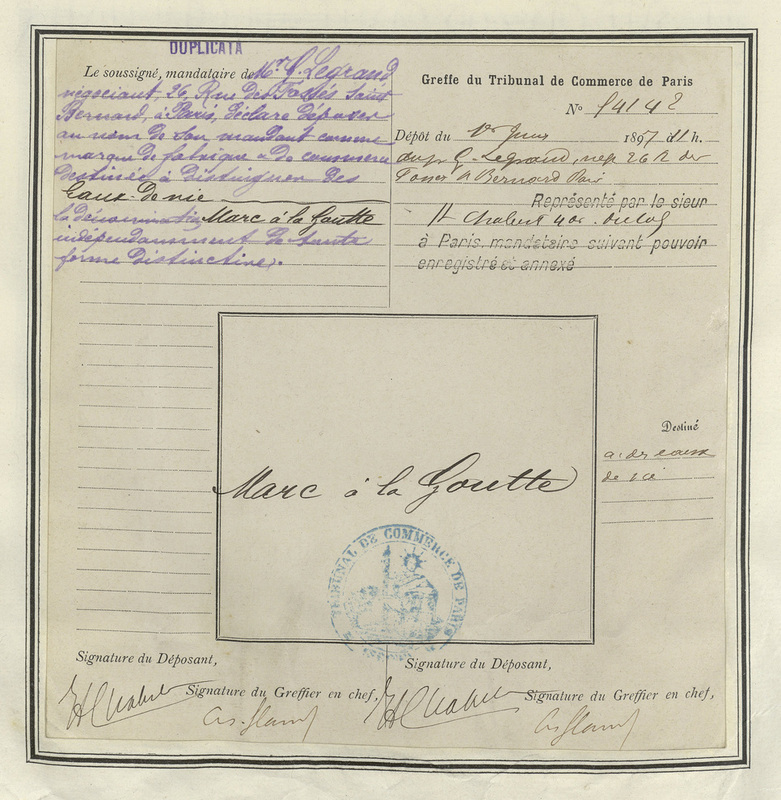 DUPLICATA
Le soussigné, mandataire de Mr. G. Legrand
négociant, 26, Rue des Fossés Saint
Bernard, à Paris, déclare déposer
au nom de son mandant comme
marque de fabrique & de commerce
destinée à distinguer des
Eaux-de-vie
la dénomination Marc à la Goutte
indépendamment de toute
forme distinctive.
Greffe du Tribunal de Commerce de Paris
No 54142
Dépôt du 1er Juin 1897 11 h.
G. Legrand, 26 R des
Fossés St Bernard Paris
Représenté par le sieur
H Chabert
à Paris, mandataire suivant pouvoir
enregistré et annexé
Marc à la Goutte
Destiné
à des eaux
de vie
TRIBUNAL DE COMMERCE DE PARIS
Signature du Déposant,
Signature du Greffier en chef,
Signature du Déposant,
Signature du Greffier en chef,